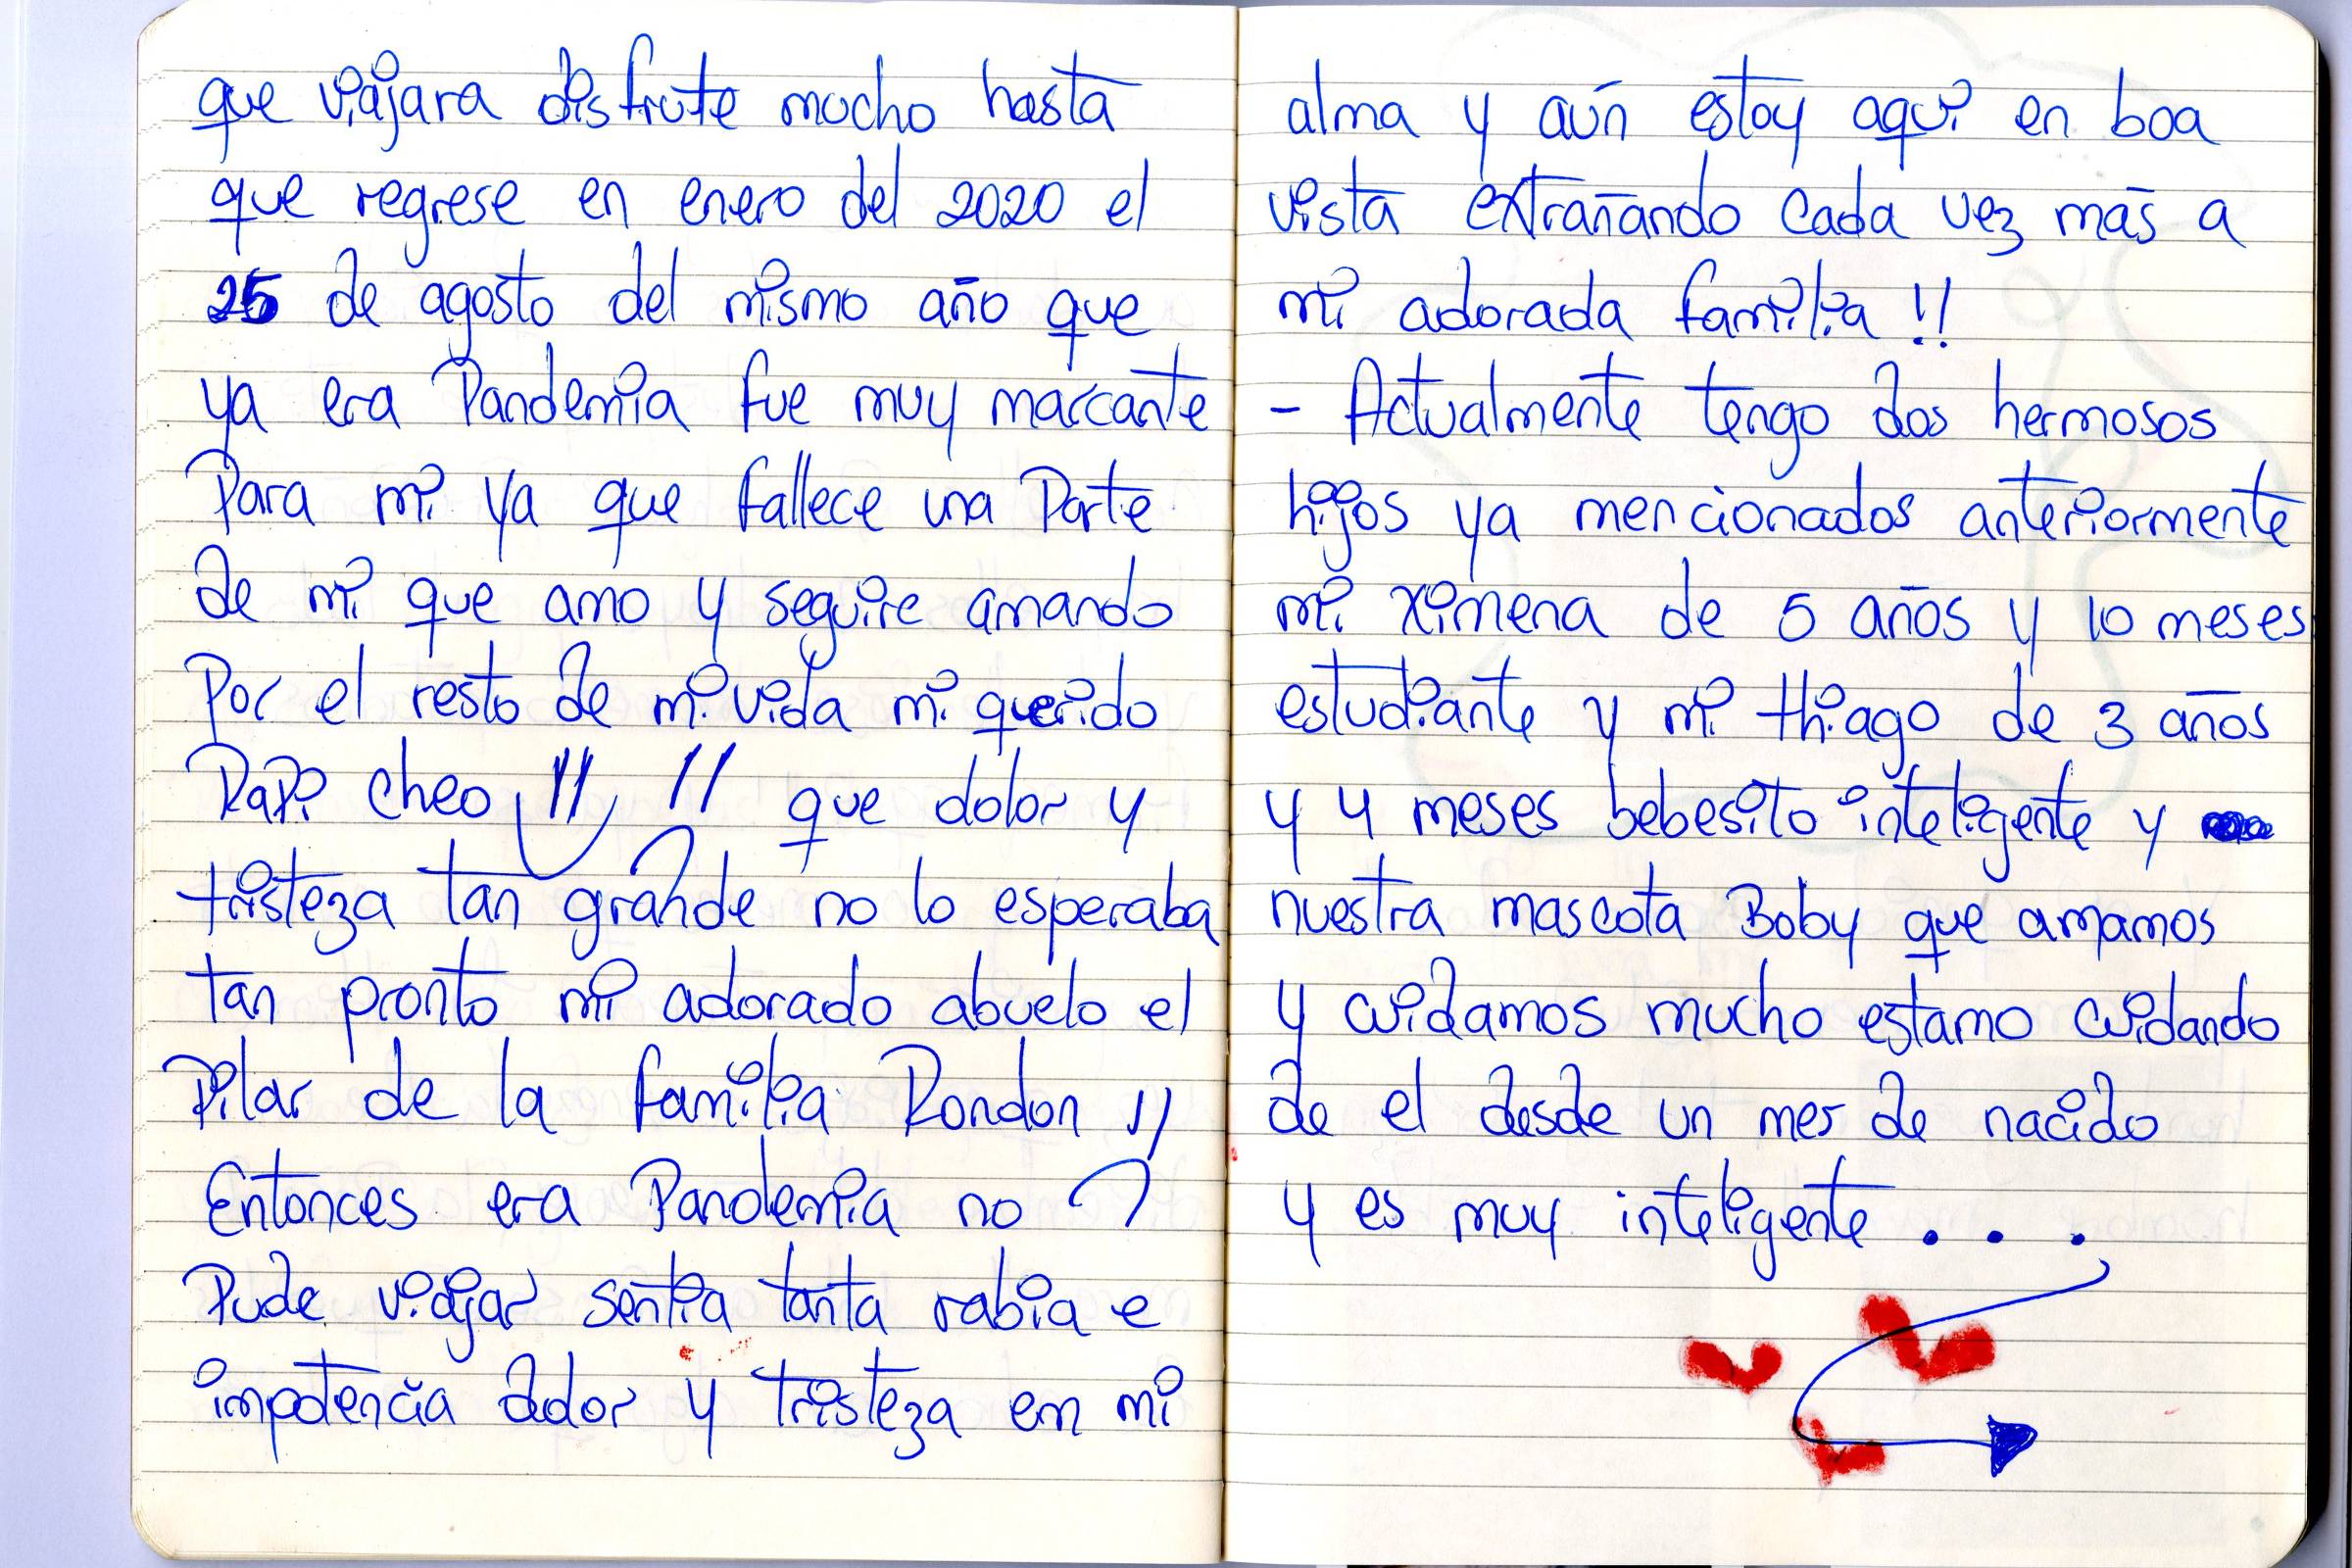 que viajara disfrute mucho hasta
que regrese en enero del 2020 el
25 de agosto del mismo año que
ya era Pandemia fue muy marcante
Para mi ya que fallece una Parte
de mi que amo y seguire amando
Por el resto de mi vida mi querido
PaPi cheo !! !! que dolor y
tristeza tan grande no lo esperaba
tan pronto mi adorado abuelo el
Pilar de la familia Rondon !!
Entonces era Pandemia no
Pude viajar sentia tanta rabia e
impotencia dolor y tristeza em mi
alma y aún estoy aqui en boa
vista extrañando cada vez más a
mi adorada familia !!
- Actualmente tengo dos hermosos
hijos ya mencionados anteriormente
mi ximena de 5 años y 10 meses
estudiante y mi thiago de 3 años
y 4 meses bebesito inteligente y
nuestra mascota Boby que amamos
y cuidamos mucho estamo cuidando
de el desde un mes de nacido
y es muy inteligente . . .